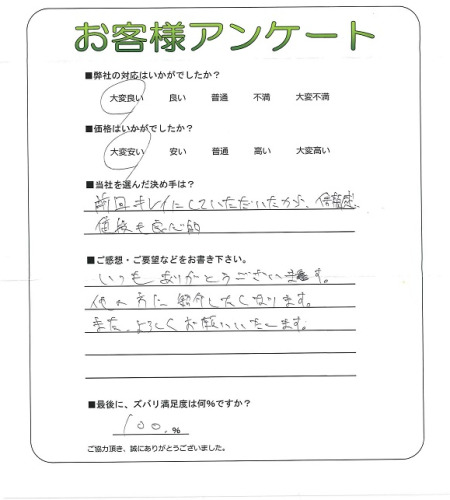 お客様アンケート
■弊社の対応はいかがでしたか？
大変良い 良い 普通 不満 大変不満
■価格はいかがでしたか？
大変安い 安い 普通 高い 大変高い
■当社を選んだ決め手は？
前回キレイにしていただいたから、信頼感
価格も良心的
■ご感想・ご要望などをお書き下さい。
いつもありがとうございます。
他の方に紹介したくなります。
また、よろしくお願いいたします。
■最後に、ズバリ満足度は何%ですか？
100.%
ご協力頂き、誠にありがとうございました。